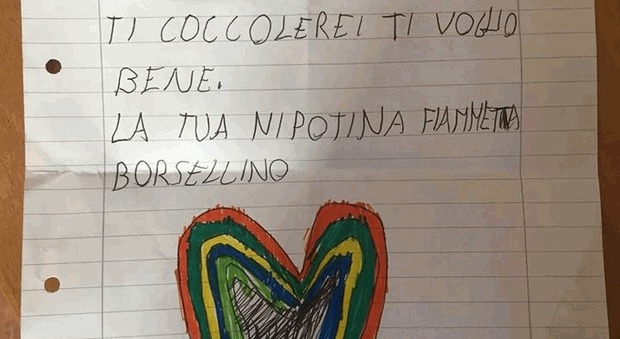 TI COCCOLEREI TI VOGLIO
BENE.
LA TUA NIPOTINA FIAMMETTA
BORSELLINO